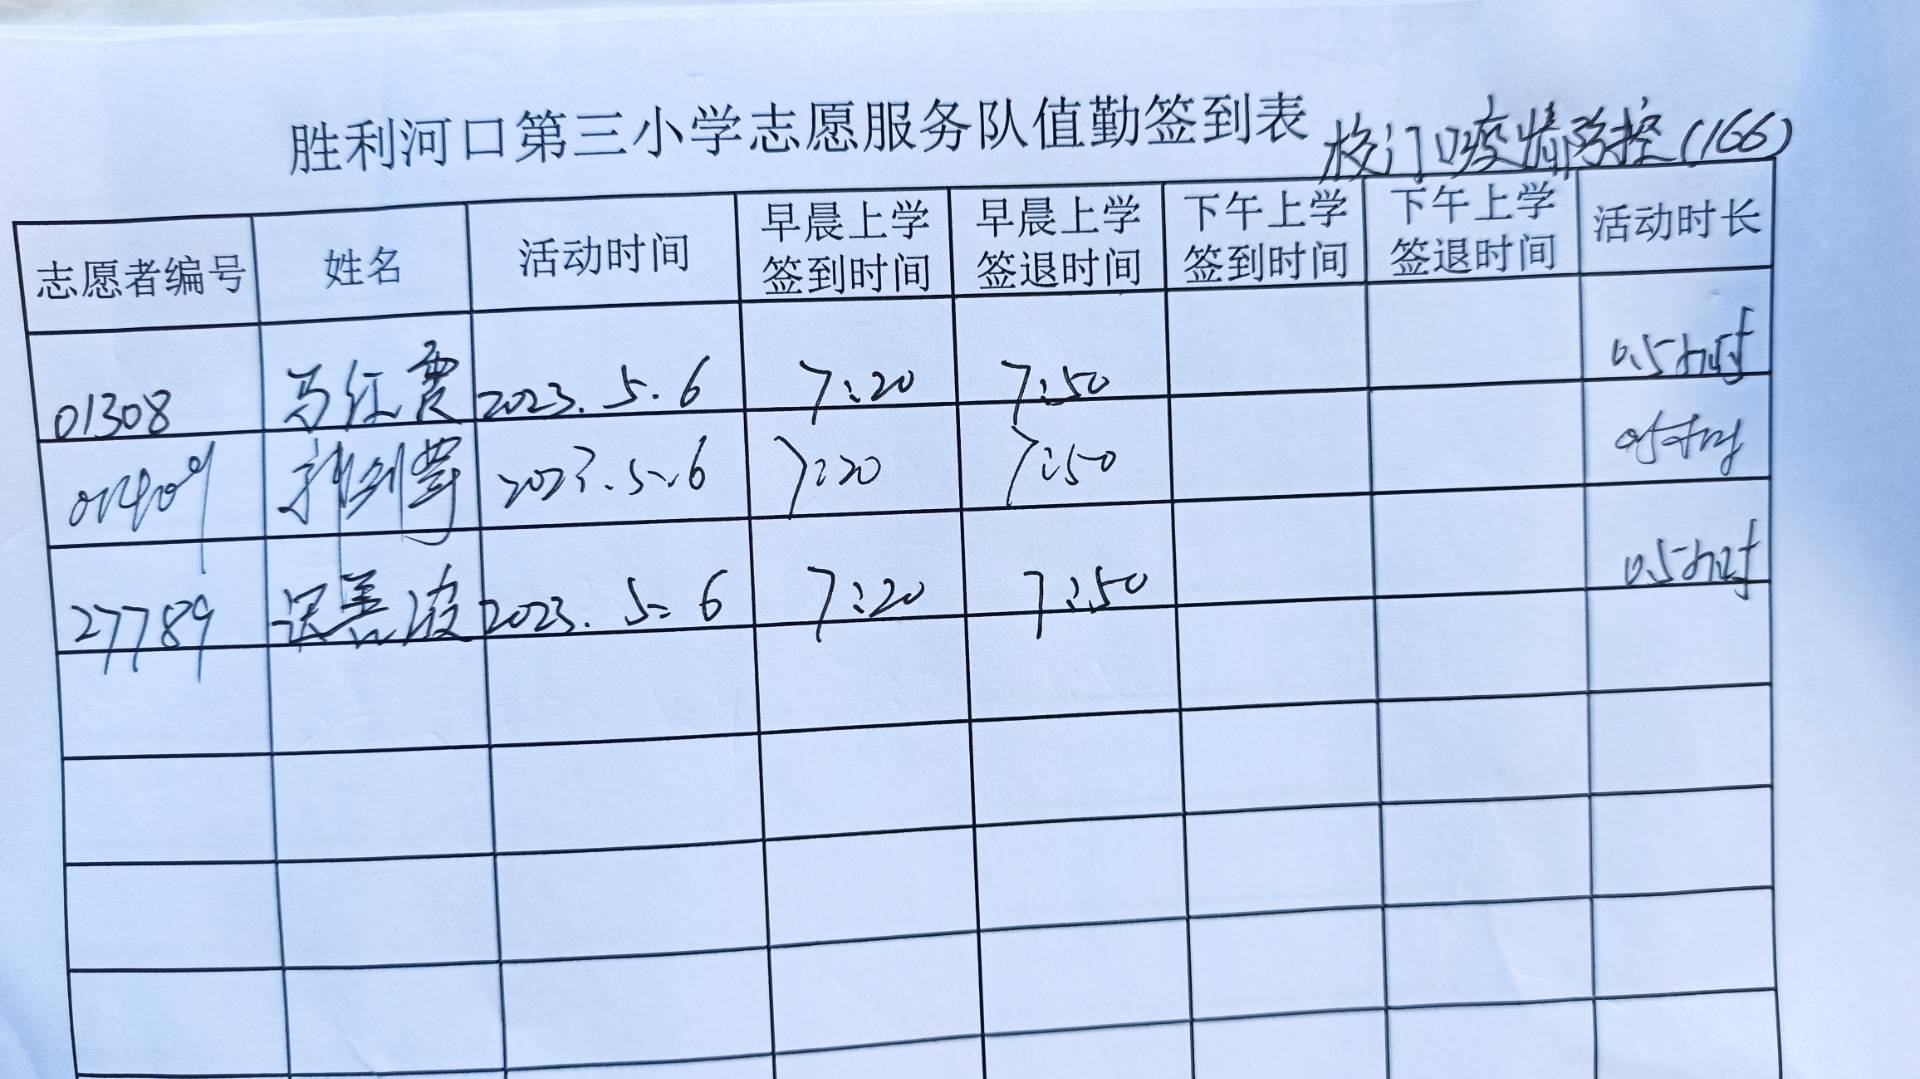 胜利河口第三小学志愿服务队值勤签到表 校门口疫情防控(166)
志愿者编号 姓名 活动时间 早晨上学签到时间 早晨上学签退时间 下午上学签到时间 下午上学签退时间 活动时长
01308 马红霞 2023.5.6 7:20 7:50 0.5小时
01409 2023.5.6 7:20 7:50 0.5小时
27789 2023.5.6 7:20 7:50 0.5小时